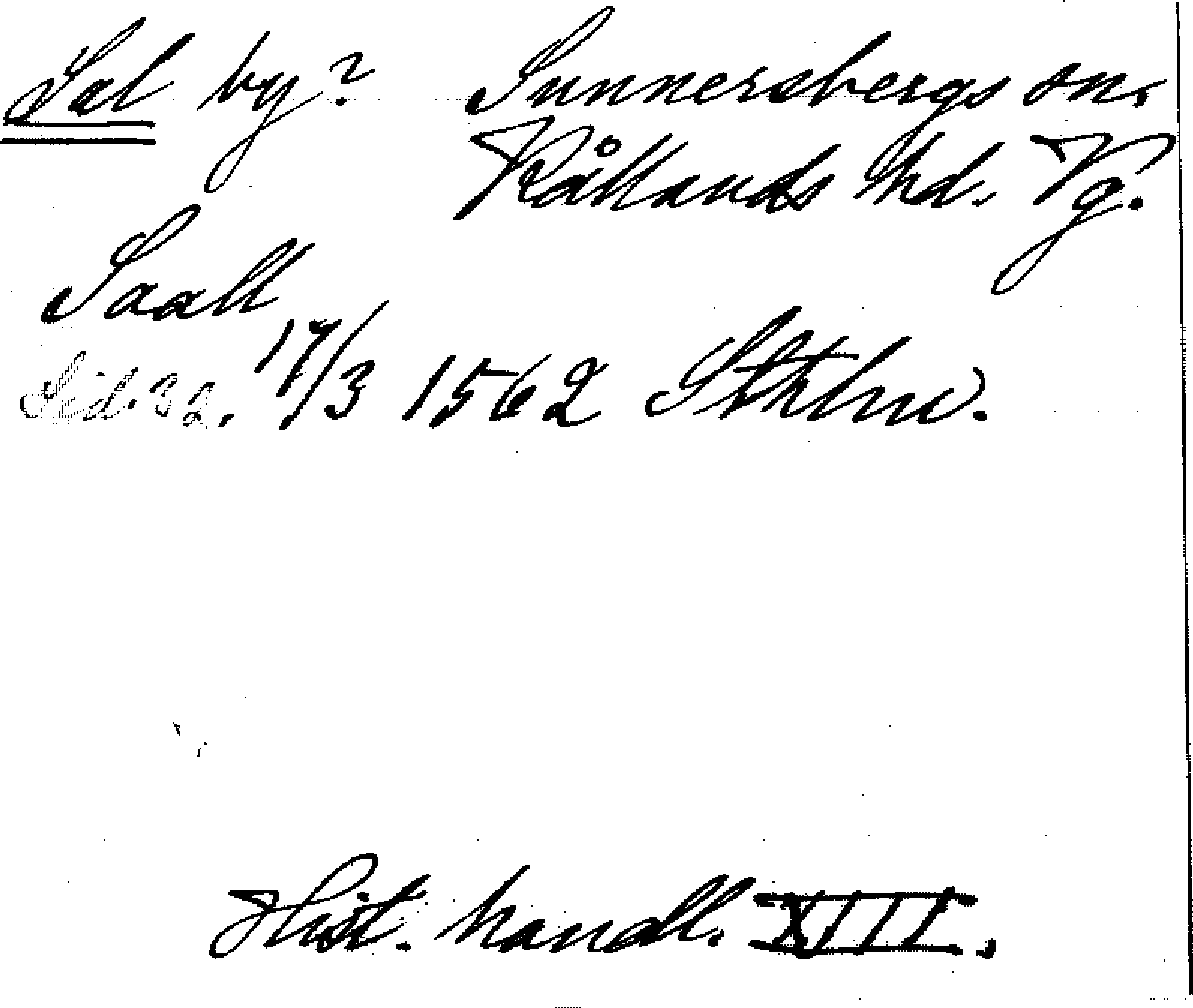 Sal by? Sunnersbergs sn.
Kållands hd. Vg.
Saall
Sid. 32. 17/3 1562 Sthlm.
Hist. handl. XIII.